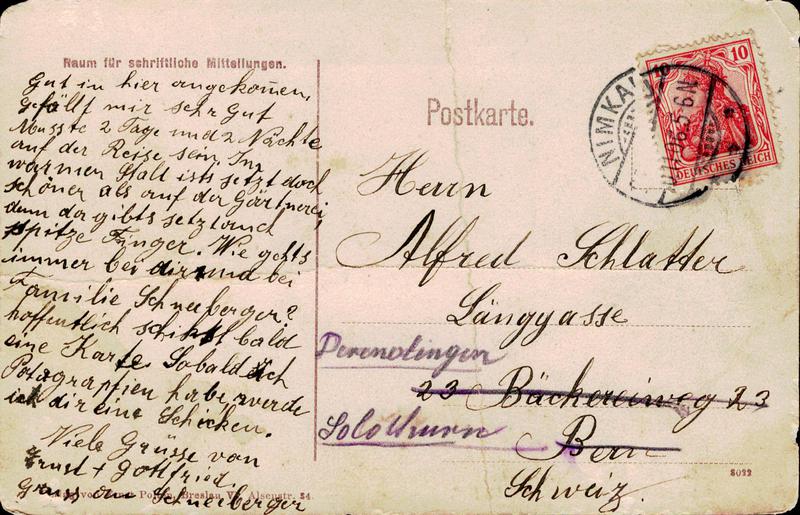 Raum für schriftliche Mitteilungen.
Gut in hier angekom̄en,
gefällt mir sehr gut
Musste 2 Tage und 2 Nächte
auf der Reise sein. Im
warmen Stall ists jetzt doch
schöner als auf der Gärtnerei,
denn da gibts jetz auch
spitze Finger. Wie gehts
immer bei dir und bei
Familie Schneeberger?
hoffentlich schikst bald
eine Karte. Sobald ich
Potagraphien habe, werde
ich dir eine Schicken.
Viele Grüsse von
Ernst + Gottfried.
Gruss an Schneeberger
Breslau Alsenstr. 24.
Postkarte.
10
DEUTSCHES REICH
NIMKAU
Herrn
Alfred Schlatter
Länggasse
Derendingen
23 Bäckereiweg 23
Solothurn
Bern
Schweiz.
8022